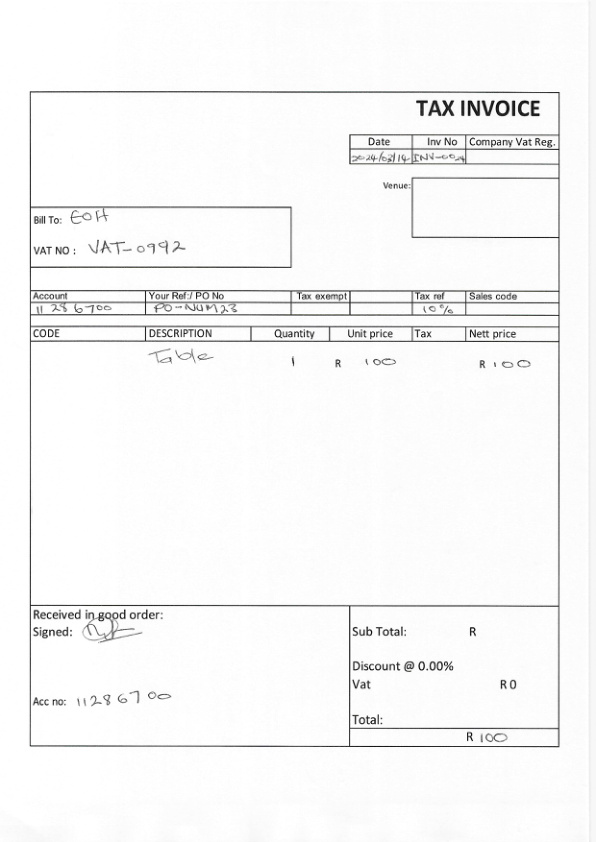 TAX INVOICE
Date Inv No Company Vat Reg.
2024/03/14 INV-0024
Venue:
Bill To: EOH
VAT NO : VAT-0992
Account Your Ref:/ PO No Tax exempt Tax ref Sales code
11 28 6700 PO-NUM23 10%
CODE DESCRIPTION Quantity Unit price Tax Nett price
Table 1 R 100 R 100
Received in good order:
Signed:
Sub Total: R
Discount @ 0.00%
Vat R 0
Acc no: 11286700
Total:
R 100